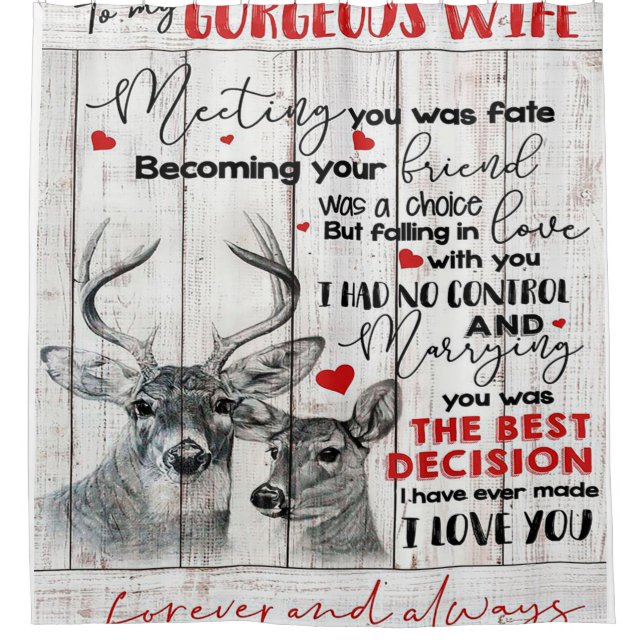 To my GORGEOUS WIFE
Meeting you was fate
Becoming your friend
was a choice
But falling in love
with you
I HAD NO CONTROL
AND
Marrying
you was
THE BEST
DECISION
I have ever made
I LOVE YOU
forever and always